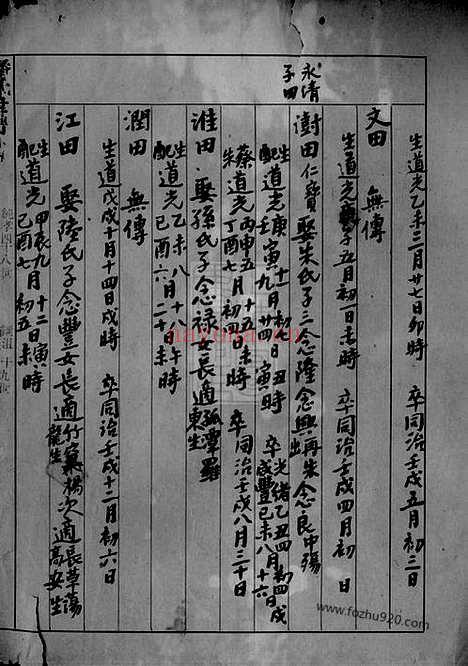 永清子田
生道光乙未三月廿七日卯時 卒同治壬戌五月初三日
文田 無傳
生道光子五月初一日未時 卒同治壬戌四月初 日
澍田 仁贊 娶朱氏子三念隆念興再朱出念良中殤
生道光庚寅十一月初七日丑時 卒光緒乙丑四月初四戌
配道光壬寅九月廿四日寅時 卒咸豐己未八月十六
蔡道光丙申五月十五未時
朱道光丁酉七月初四日未時 卒同治壬戌八月三十日
淮田 娶孫氏子念祿女長適孤潭羅東生
生道光乙未八月十一日午時
配道光己酉六月二十日未時
潤田 無傳
生道光戊戌十月十四日戌時 卒同治壬戌十二月初六日
江田 娶陸氏子念豐女長適竹窠楊龍生次適長蕩高安生
生道光甲辰九月十二日寅時
配道光己酉七月初五日未時
nayona.cn
www.fozhu920.com